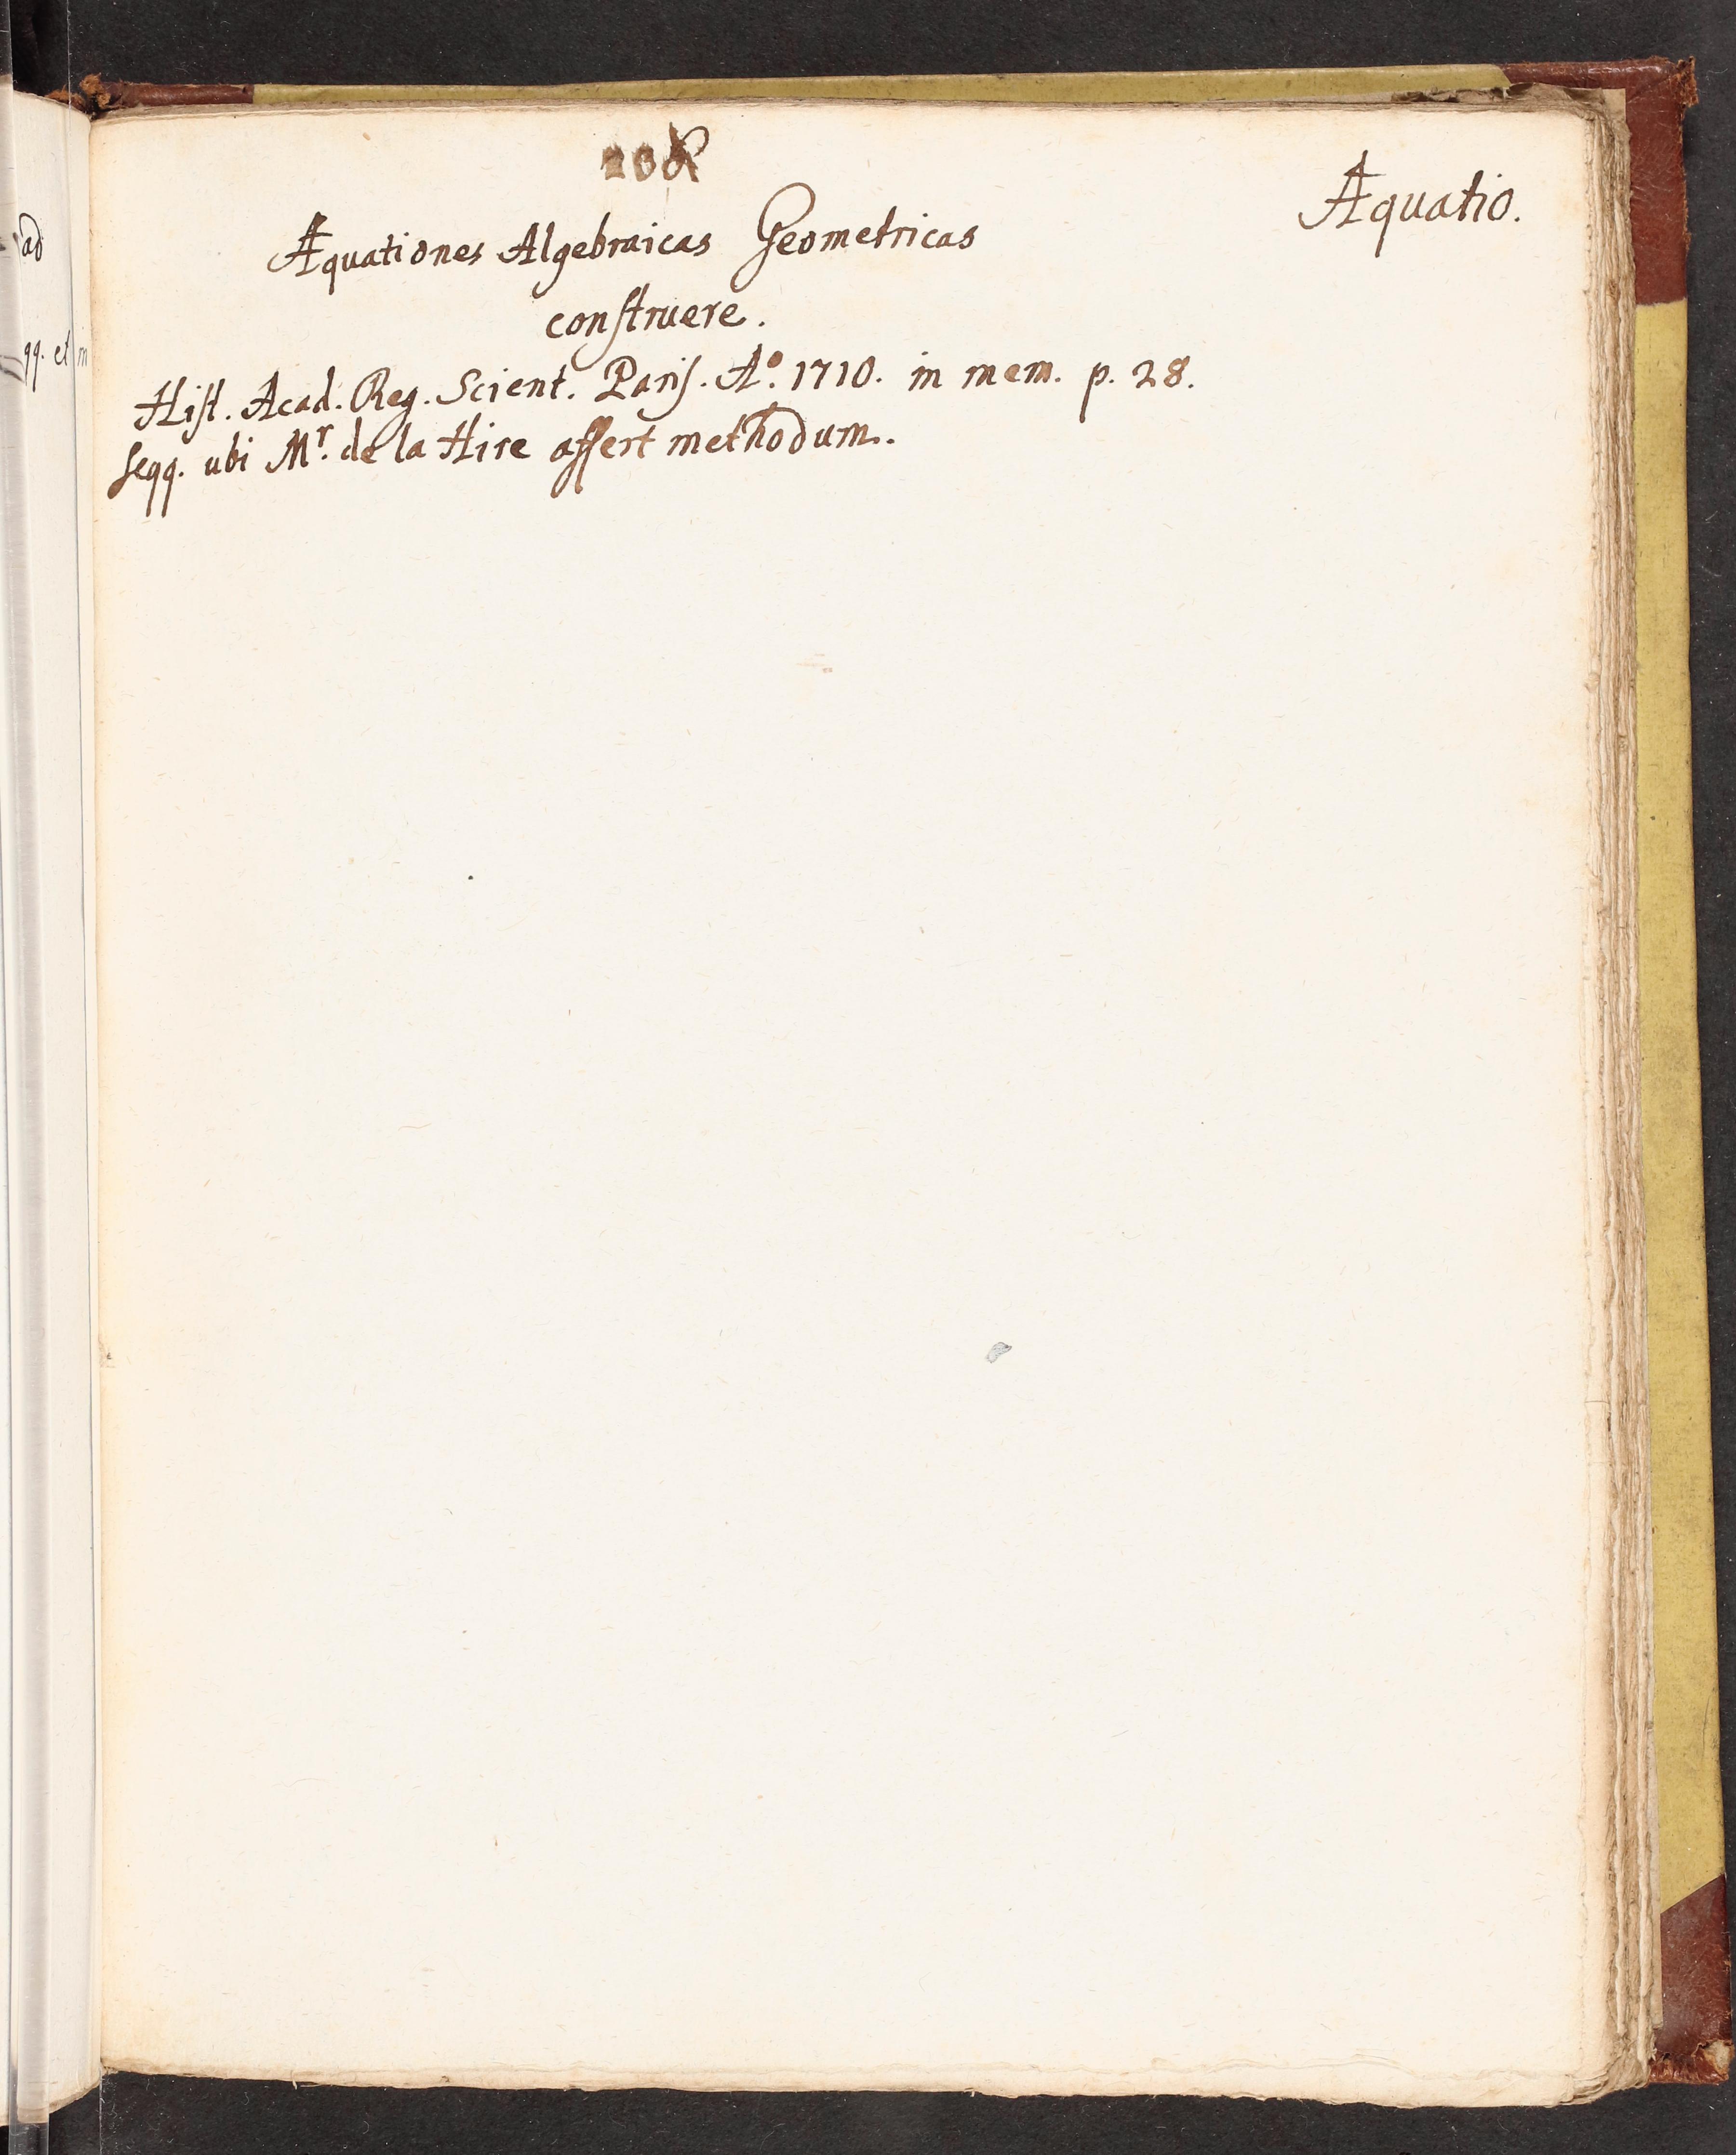 Æquatio.
Æquationes Algebraicas Geometricas
construere.
Hist. Acad. Reg. Scient. Paris. Aº. 1710. in mem. p. 28.
seqq. ubi Mr. de la Hire affert methodum.
ad
qq. et m